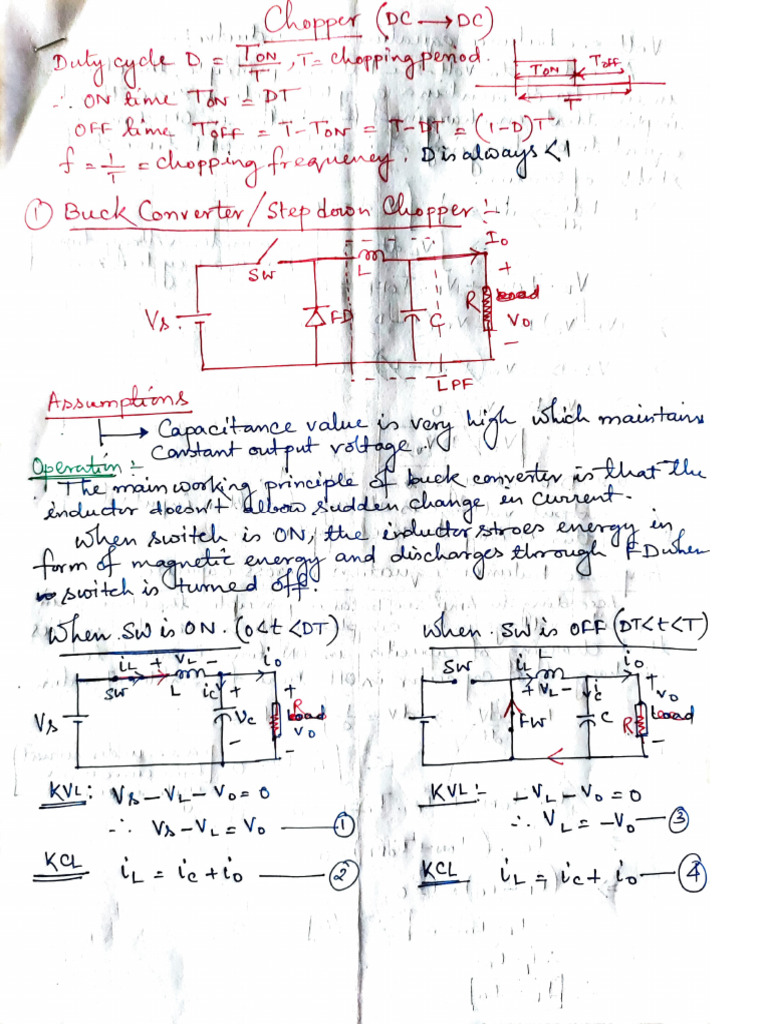 Chopper (DC → DC)
Duty cycle D = TON/T, T = chopping period.
TON TOFF
T
∴ ON time TON = DT
OFF time TOFF = T-TON = T-DT = (1-D)T
f = 1/T = chopping frequency. D is always < 1
① Buck Converter/Step down Chopper :-
SW L Io
+
Vs FD C R Load
Vo
-
LPF
Assumptions
→ Capacitance value is very high which maintains
constant output voltage.
Operation :-
The main working principle of buck converter is that the
inductor doesn't allow sudden change in current.
When switch is ON, the inductor stroes energy in
form of magnetic energy and discharges through FD when
switch is turned off.
When SW is ON. (0<t<DT)
iL + VL - io
SW L ic + +
Vs Vc R Load
Vo
- -
When SW is OFF (DT<t<T)
SW iL L io
+ VL - ic + Vo
FW C R Load
-
KVL: Vs - VL - Vo = 0
∴ Vs - VL = Vo — ①
KCL iL = ic + io — ②
KVL:- -VL - Vo = 0
∴ VL = -Vo — ③
KCL iL = ic + io — ④